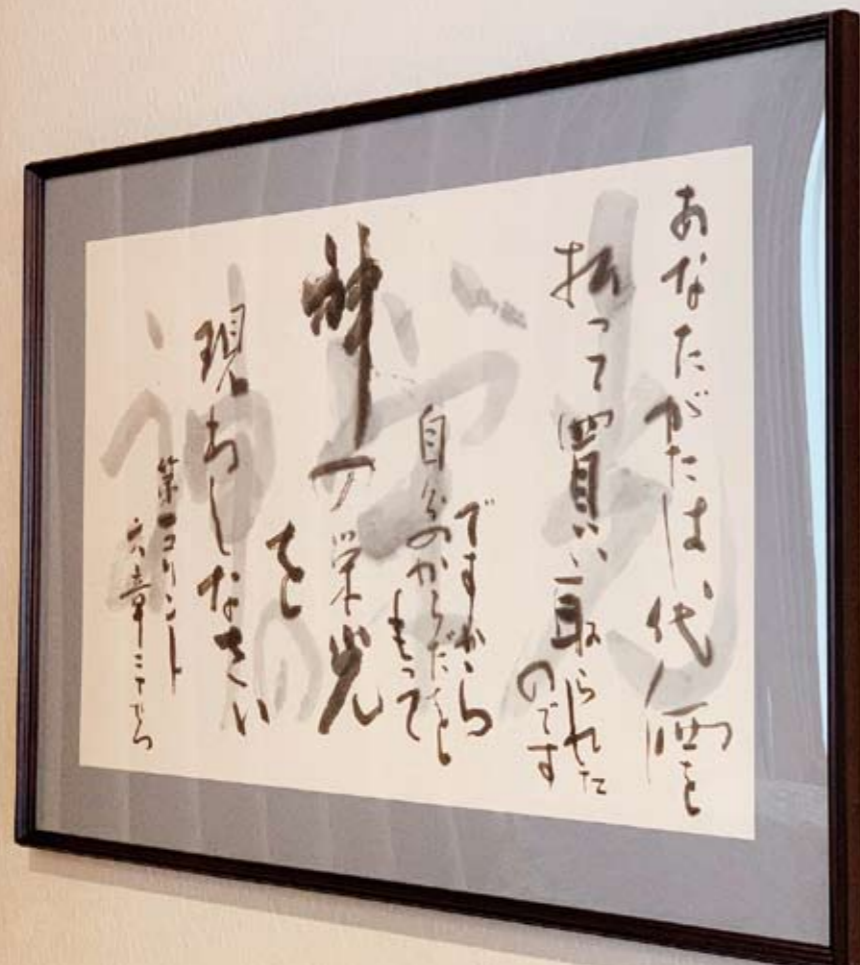 あなたがたは、代価を
払って買い取られた
のです
ですから
自分のからだをもって
神の栄光
を
現わしなさい
第一コリント
六章二十でつ
神の栄光